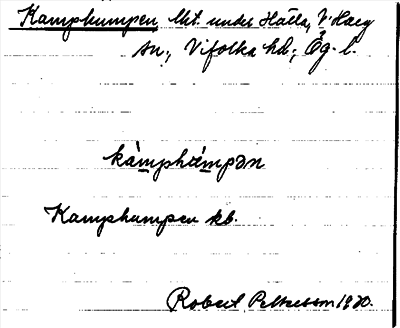 Kamphumpen, Mt. under Hälla, V. Harg
sn., Vifolka hd., Ög. l.
kàmphúmpən
Kamphumpen kb.
Robert Pettersson 1930.